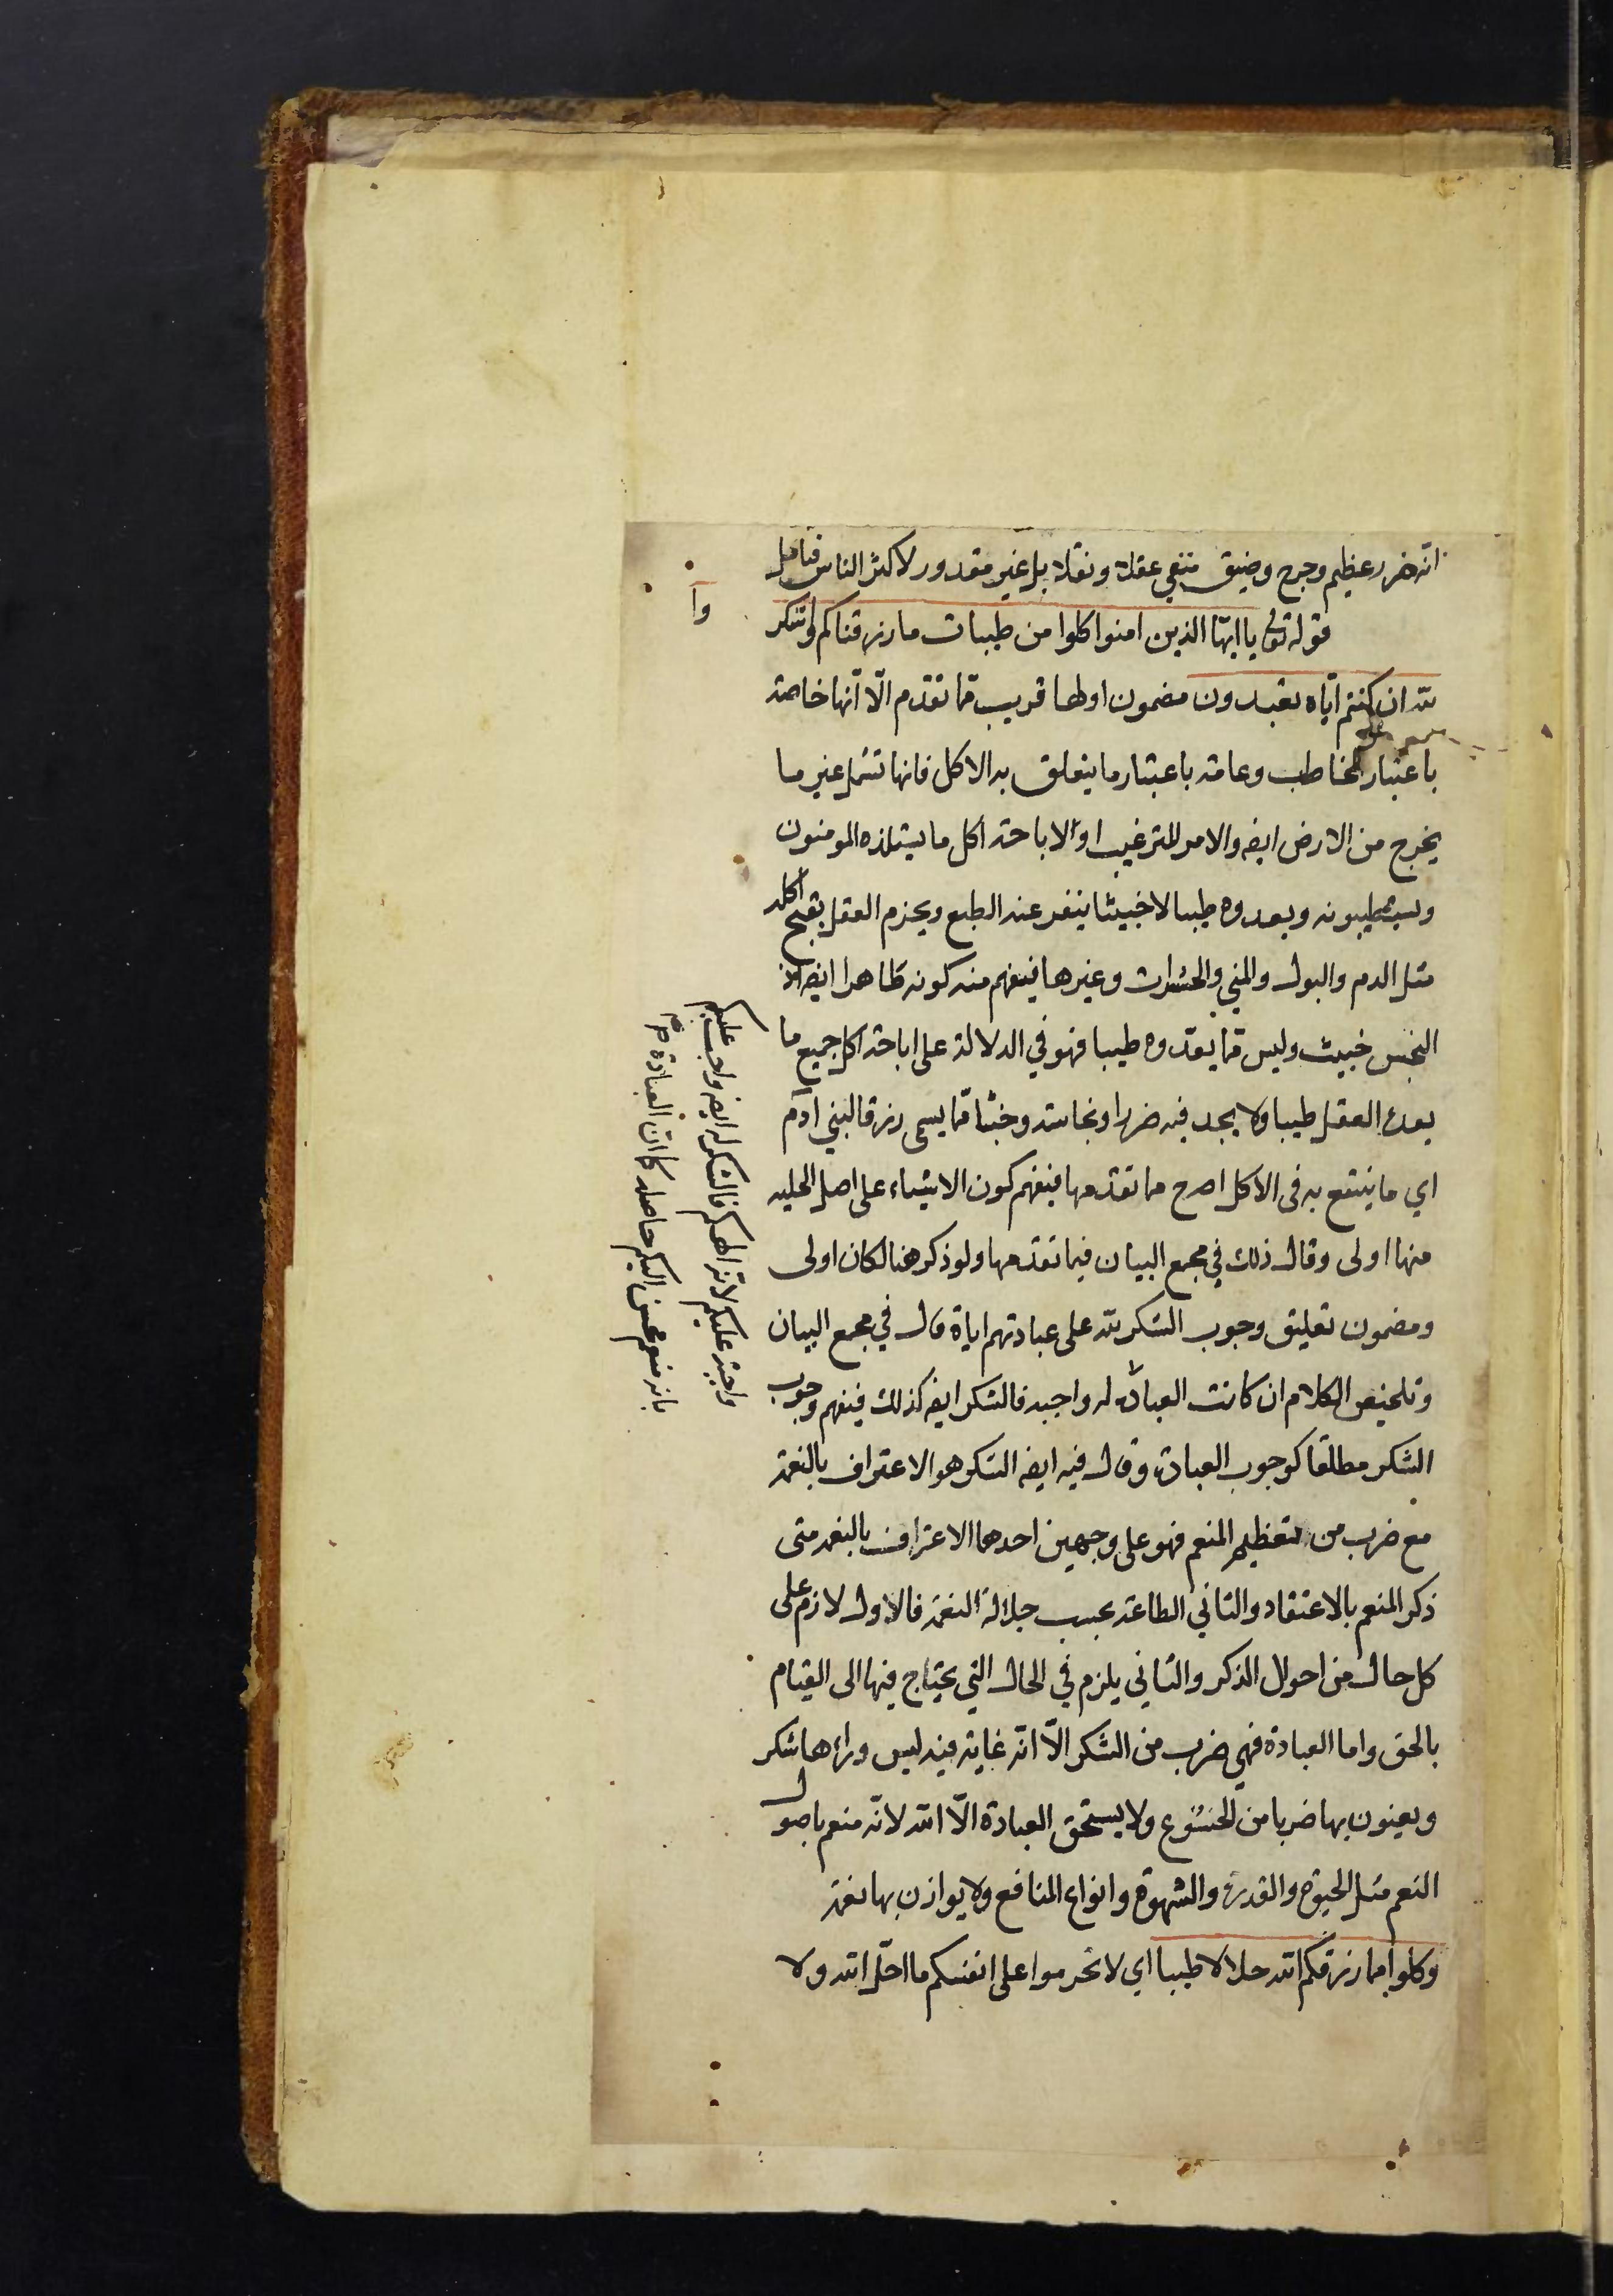 انّه ضرر عظيم وحرج وضيق منفي عقلا ونقلا بل غير مقدور لاكثر الناس فتامل
قوله تعالى يا ايهّا الذين امنوا كلوا من طيبات ما رزقناكم واشكروا
لله ان كنتم ايّاه تعبدون مضمون اولها قريب ممّا تقدّم الّا انّها خاصة
باعتبار المخاطب وعامة باعتبار ما يتعلق به الاكل فانها تشمل غير ما
يخرج من الارض ايضه والامر للترغيب او لاباحة اكل ما يستلذه المومنون
ويستطيبونه ويعدوه طيبا لا خبيثا ينفر عنه الطبع ويجزم العقل بقبح اكله
مثل الدم والبول والمني والحشرات وغيرها فيفهم منه كونه طاهرا ايضه لانّ
النجس خبيث وليس ممّا يعدّوه طيبا فهو في الدلالة على اباحة اكل جميع ما
يعده العقل طيبا ولا يجد فيه ضررا ونجاسة وخبثا ممّا يسمى رزقا لبني آدم
اي ما ينتفع به في الاكل اصرح مما تقدمها فيفهم كون الاشياء على اصل الحليه
منها اولى وقال ذلك في مجمع البيان فيما تقدمها ولو ذكر هنا لكان اولى
ومضمون تعليق وجوب الشكر لله على عبادتهم اياه قال في مجمع البيان
وتلخيص الكلام ان كانت العبادة له واجبه فالشكر ايضه كذلك فيفهم وجوب
الشكر مطلقا كوجوب العبادة وقال فيه ايضه الشكر هو الاعتراف بالنعمة
مع ضرب من التعظيم المنعم فهو على وجهين احدهما الاعتراف بالنعمه متى
ذكر المنعم بالاعتقاد والثاني الطاعة بحسب جلالة النعمة فالاول لازم على
كل حال من احوال الذكر والثاني يلزم في الحال التي يحتاج فيها الى القيام
بالحق واما العبادة فهي ضرب من الشكر الّا انّه غاية فيه ليس وراءها شكر
ويعنون بها ضربا من الخشوع ولا يستحق العبادة الّا الله لانّه منعم باصول
النعم مثل الحيوة والقدرة والشهوة وانواع المنافع ولا يوازن بها نعمة
وكلوا مما رزقكم الله حلالا طيبا اي لا تحرموا على انفسكم ما احلّ الله ولا
وا
واجبة عليكم لانه الهكم فالشكر له ايضه واجب عليكم
بانه منعم محسن اليكم حاصله كما انّ العبادة